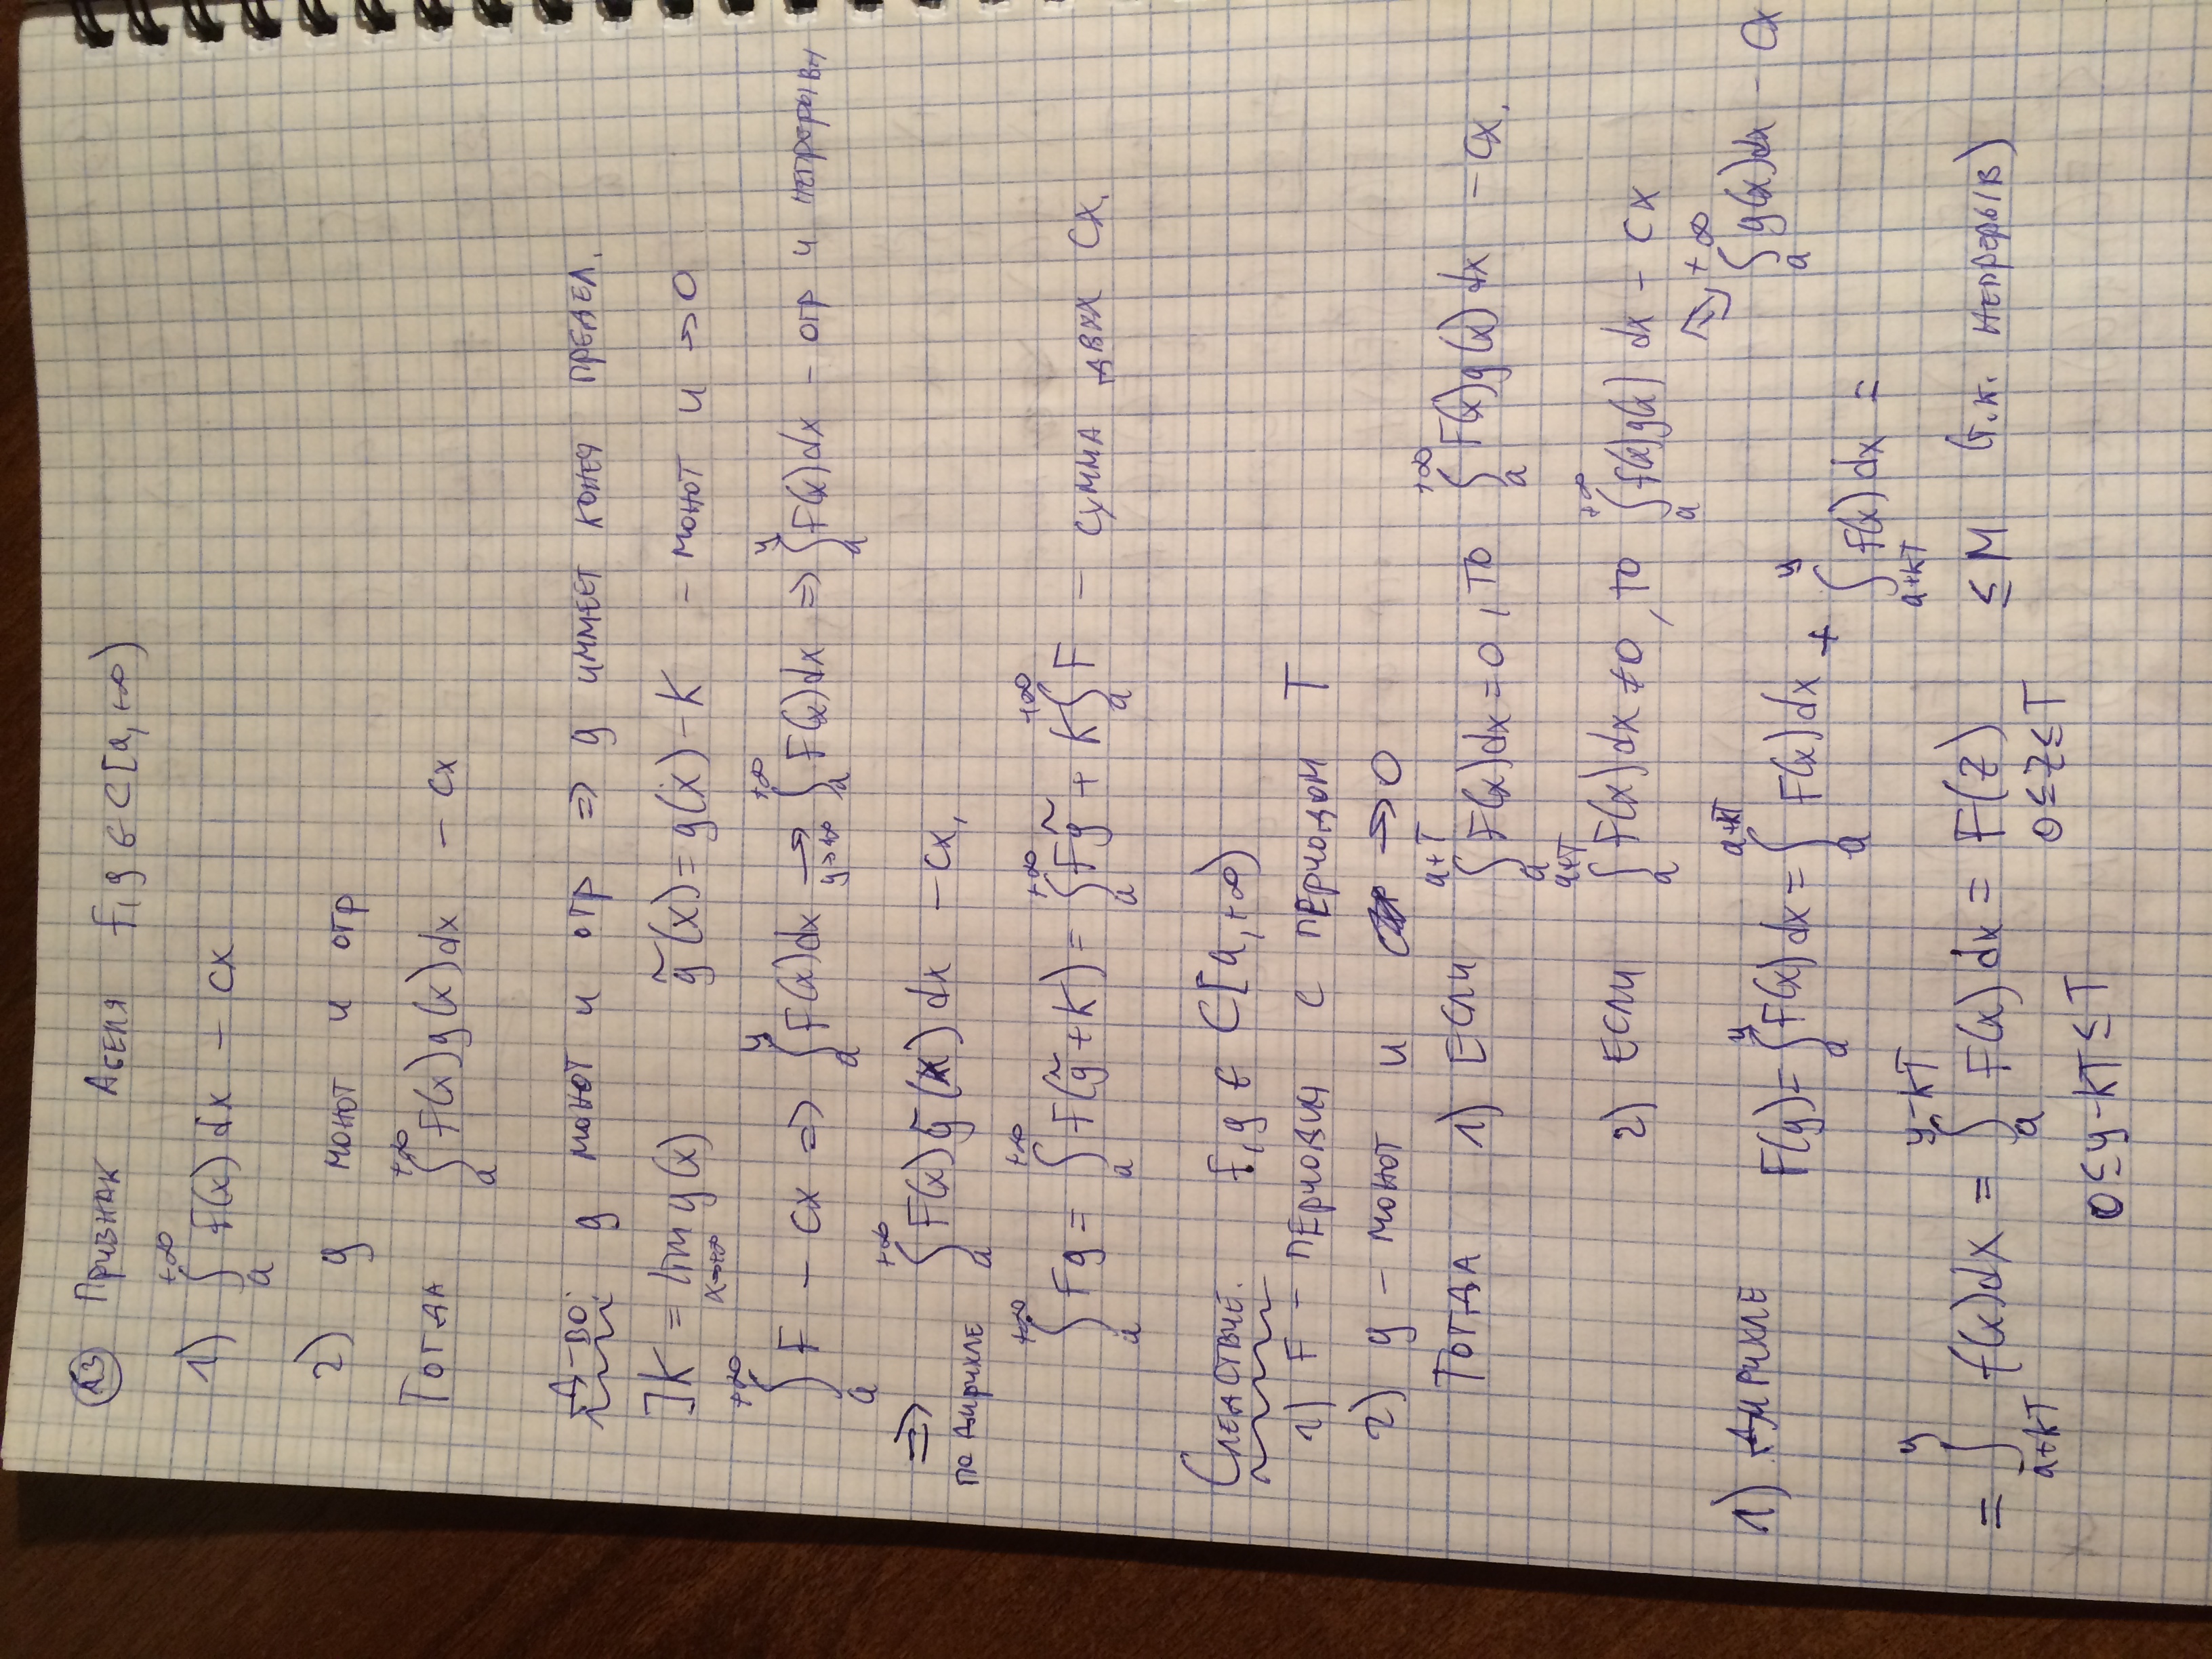 А3 Признак Абеля f, g ∈ C[a, +∞)
1) ∫_a^{+∞} f(x) dx – сх
2) g монот и огр
Тогда ∫_a^{+∞} f(x)g(x)dx – сх
Д-во: g монот и огр ⇒ g иммеет конеч предел.
]K = lim_{x→+∞} g(x) g̃(x) = g(x) – K – монот и → 0
∫_a^{+∞} f – сх ⇒ ∫_a^y f(x)dx →_{y→+∞} ∫_a^{+∞} f(x)dx ⇒ ∫_a^y f(x)dx – огр и непрерывн
⇒ по Дирихле ∫_a^{+∞} f(x) g̃(x) dx – сх,
∫_a^{+∞} fg = ∫_a^{+∞} f(g̃ + K) = ∫_a^{+∞} fg̃ + K∫_a^{+∞} f – сумма двух сх.
Следствие. f, g ∈ C[a, +∞)
1) f – периодич с периодом T
2) g – монот и → 0
Тогда 1) Если ∫_a^{a+T} f(x)dx = 0, то ∫_a^{+∞} f(x)g(x) dx – сх.
2) Если ∫_a^{a+T} f(x) dx ≠ 0, то ∫_a^{+∞} f(x)g(x) dx – сх
⇔ ∫_a^{+∞} g(x)dx – сх
1) Дирихле F(y) = ∫_a^y f(x) dx = ∫_a^{a+kT} f(x) dx + ∫_{a+kT}^y f(x) dx =
= ∫_{a+kT}^y f(x)dx = ∫_a^{y-kT} f(x) dx = F(z) ≤ M (т.к. непрерыв)
0 ≤ z ≤ T
0 ≤ y – kT ≤ T